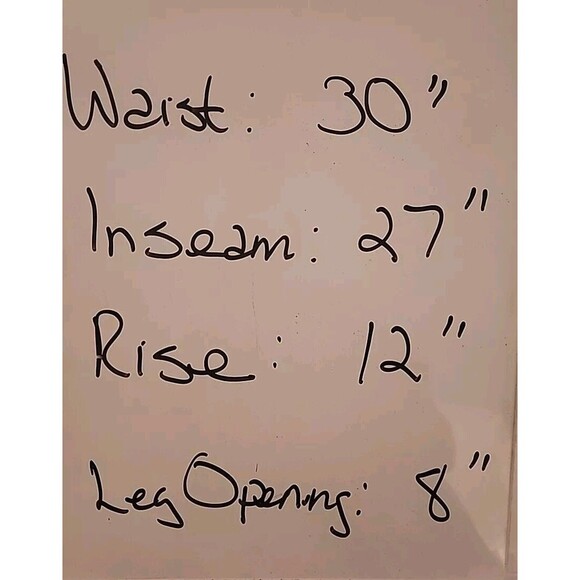 Waist: 30"
Inseam: 27"
Rise: 12"
Leg Opening: 8"